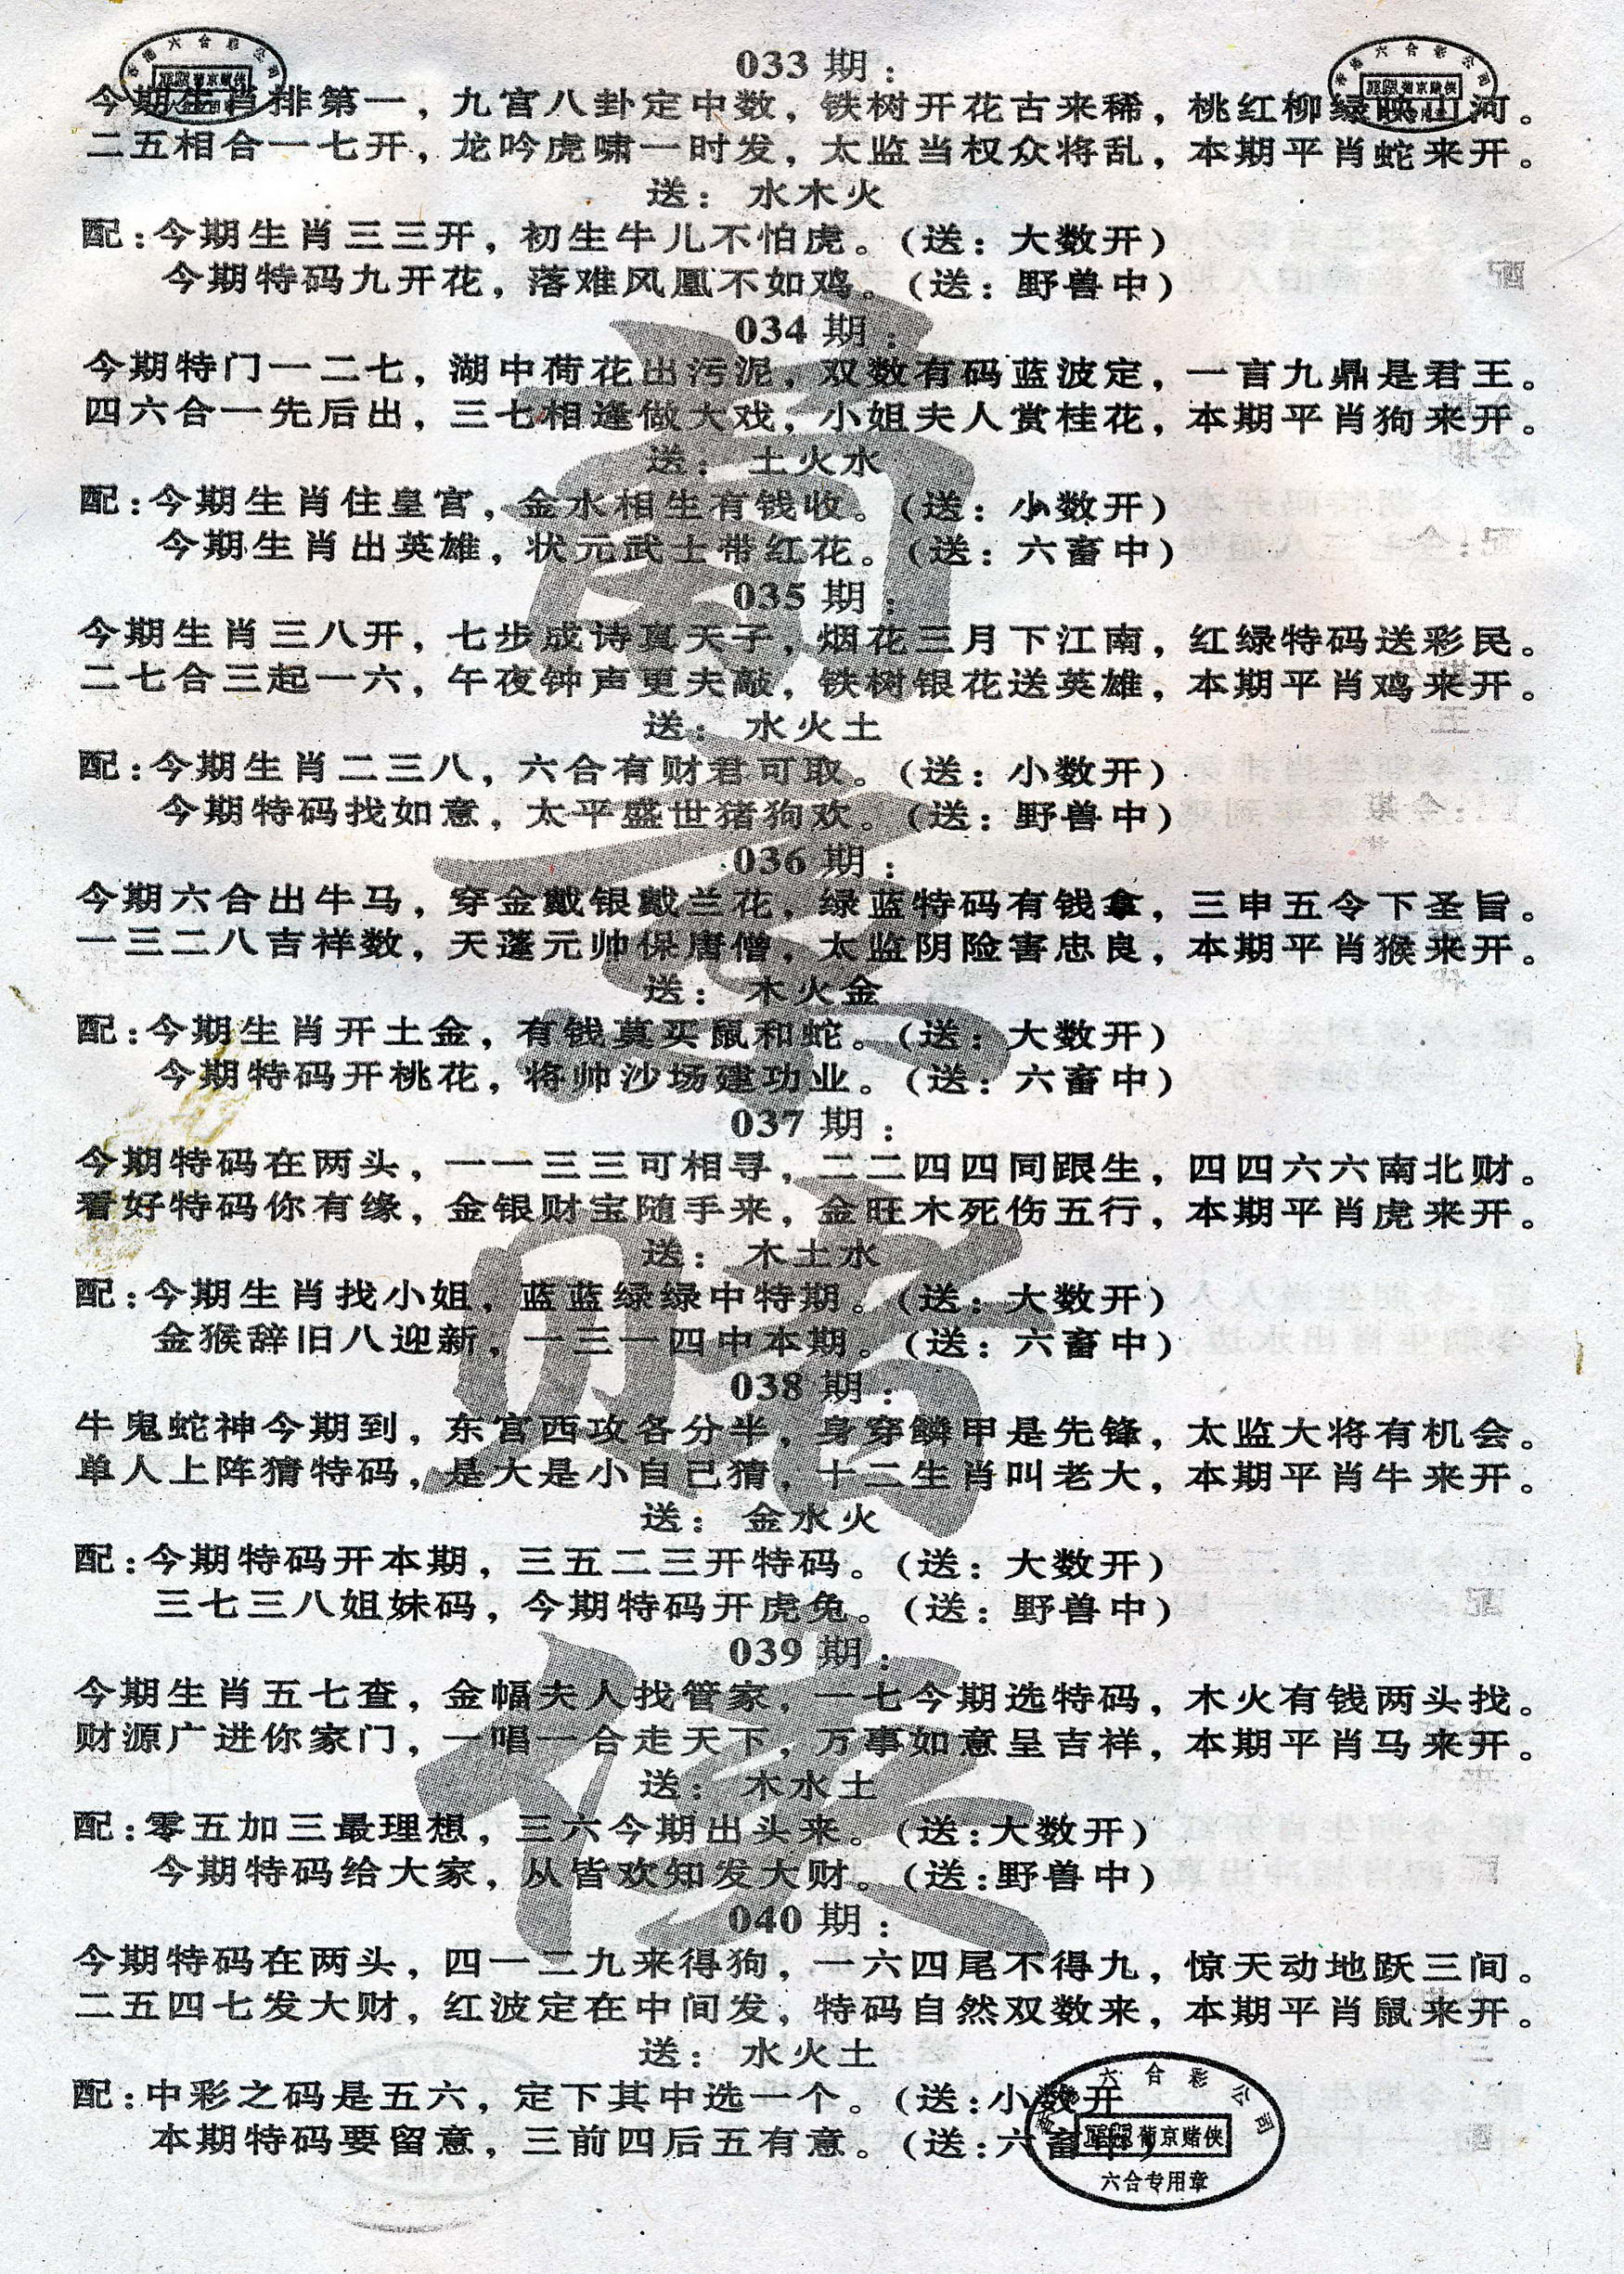 033 期：
今期生肖排第一，九宫八卦定中数，铁树开花古来稀，桃红柳绿映山河。
二五相合一七开，龙吟虎啸一时发，太监当权众将乱，本期平肖蛇来开。
送：水木火
配：今期生肖三三开，初生牛儿不怕虎。（送：大数开）
今期特码九开花，落难风凰不如鸡。（送：野兽中）
034 期：
今期特门一二七，湖中荷花出污泥，双数有码蓝波定，一言九鼎是君王。
四六合一先后出，三七相逢做大戏，小姐夫人赏桂花，本期平肖狗来开。
送：土火水
配：今期生肖住皇宫，金水相生有钱收。（送：小数开）
今期生肖出英雄，状元武士带红花。（送：六畜中）
035 期：
今期生肖三八开，七步成诗真天子，烟花三月下江南，红绿特码送彩民。
二七合三起一六，午夜钟声更夫敲，铁树银花送英雄，本期平肖鸡来开。
送：水火土
配：今期生肖二三八，六合有财君可取。（送：小数开）
今期特码找如意，太平盛世猪狗欢。（送：野兽中）
036 期：
今期六合出牛马，穿金戴银戴兰花，绿蓝特码有钱拿，三申五令下圣旨。
一三二八吉祥数，天蓬元帅保唐僧，太监阴险害忠良，本期平肖猴来开。
送：木火金
配：今期生肖开土金，有钱莫买鼠和蛇。（送：大数开）
今期特码开桃花，将帅沙场建功业。（送：六畜中）
037 期：
今期特码在两头，一一三三可相寻，二二四四同跟生，四四六六南北财。
看好特码你有缘，金银财宝随手来，金旺木死伤五行，本期平肖虎来开。
送：木土水
配：今期生肖找小姐，蓝蓝绿绿中特期。（送：大数开）
金猴辞旧八迎新，一三一四中本期。（送：六畜中）
038 期：
牛鬼蛇神今期到，东宫西攻各分半，身穿鳞甲是先锋，太监大将有机会。
单人上阵猜特码，是大是小自己猜，十二生肖叫老大，本期平肖牛来开。
送：金水火
配：今期特码开本期，三五二三开特码。（送：大数开）
三七三八姐妹码，今期特码开虎兔。（送：野兽中）
039 期：
今期生肖五七查，金幅夫人找管家，一七今期选特码，木火有钱两头找。
财源广进你家门，一唱一合走天下，万事如意呈吉祥，本期平肖马来开。
送：木水土
配：零五加三最理想，三六今期出头来。（送：大数开）
今期特码给大家，从皆欢知发大财。（送：野兽中）
040 期：
今期特码在两头，四一二九来得狗，一六四尾不得九，惊天动地跃三间。
二五四七发大财，红波定在中间发，特码自然双数来，本期平肖鼠来开。
送：水火土
配：中彩之码是五六，定下其中选一个。（送：小数开
本期特码要留意，三前四后五有意。（送：六畜中）
六合彩公司
葡京赌侠
六合专用章